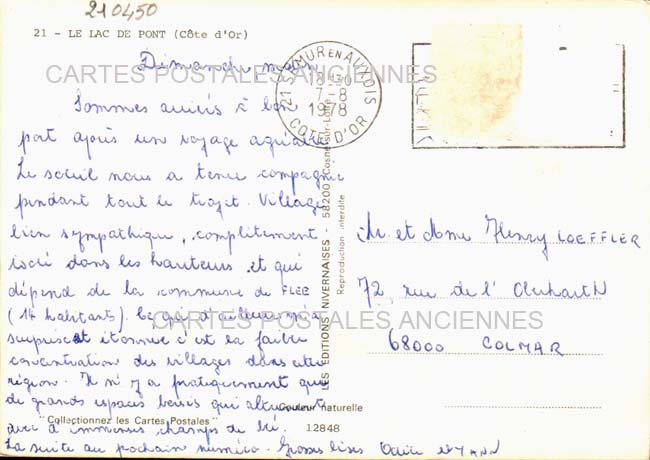 210450
21 - LE LAC DE PONT (Côte d'Or)
Dimanche
CARTES POSTALES ANCIENNES
21 SEMUR EN AUXOIS
18H30
7-8
1978
COTE D'OR
Sommes arrivés à bon
port après un voyage agréable.
Le soleil nous a tenu compagnie
pendant tout le trajet. Village
bien sympathique, complètement
isolé dans les hauteurs et qui
dépend de la commune de FLEE
(14 habitants). Ce qui d'ailleurs m'a
surpris et étonnée c'est la faible
concentration des villages dans cette
région. Il n'y a pratiquement que
de grands espaces boisés qui alternent
avec d'immenses champs de blé.
La suite au prochain numéro. Grosses bises YANN
LES EDITIONS NIVERNAISES 58200 Cosne-sur-Loire
Reproduction interdite
Mr et Mme Henry LOEFFLER
72, rue de l'
68000 COLMAR
CARTES POSTALES ANCIENNES
"Collectionnez les Cartes Postales"
Couleur naturelle
12848